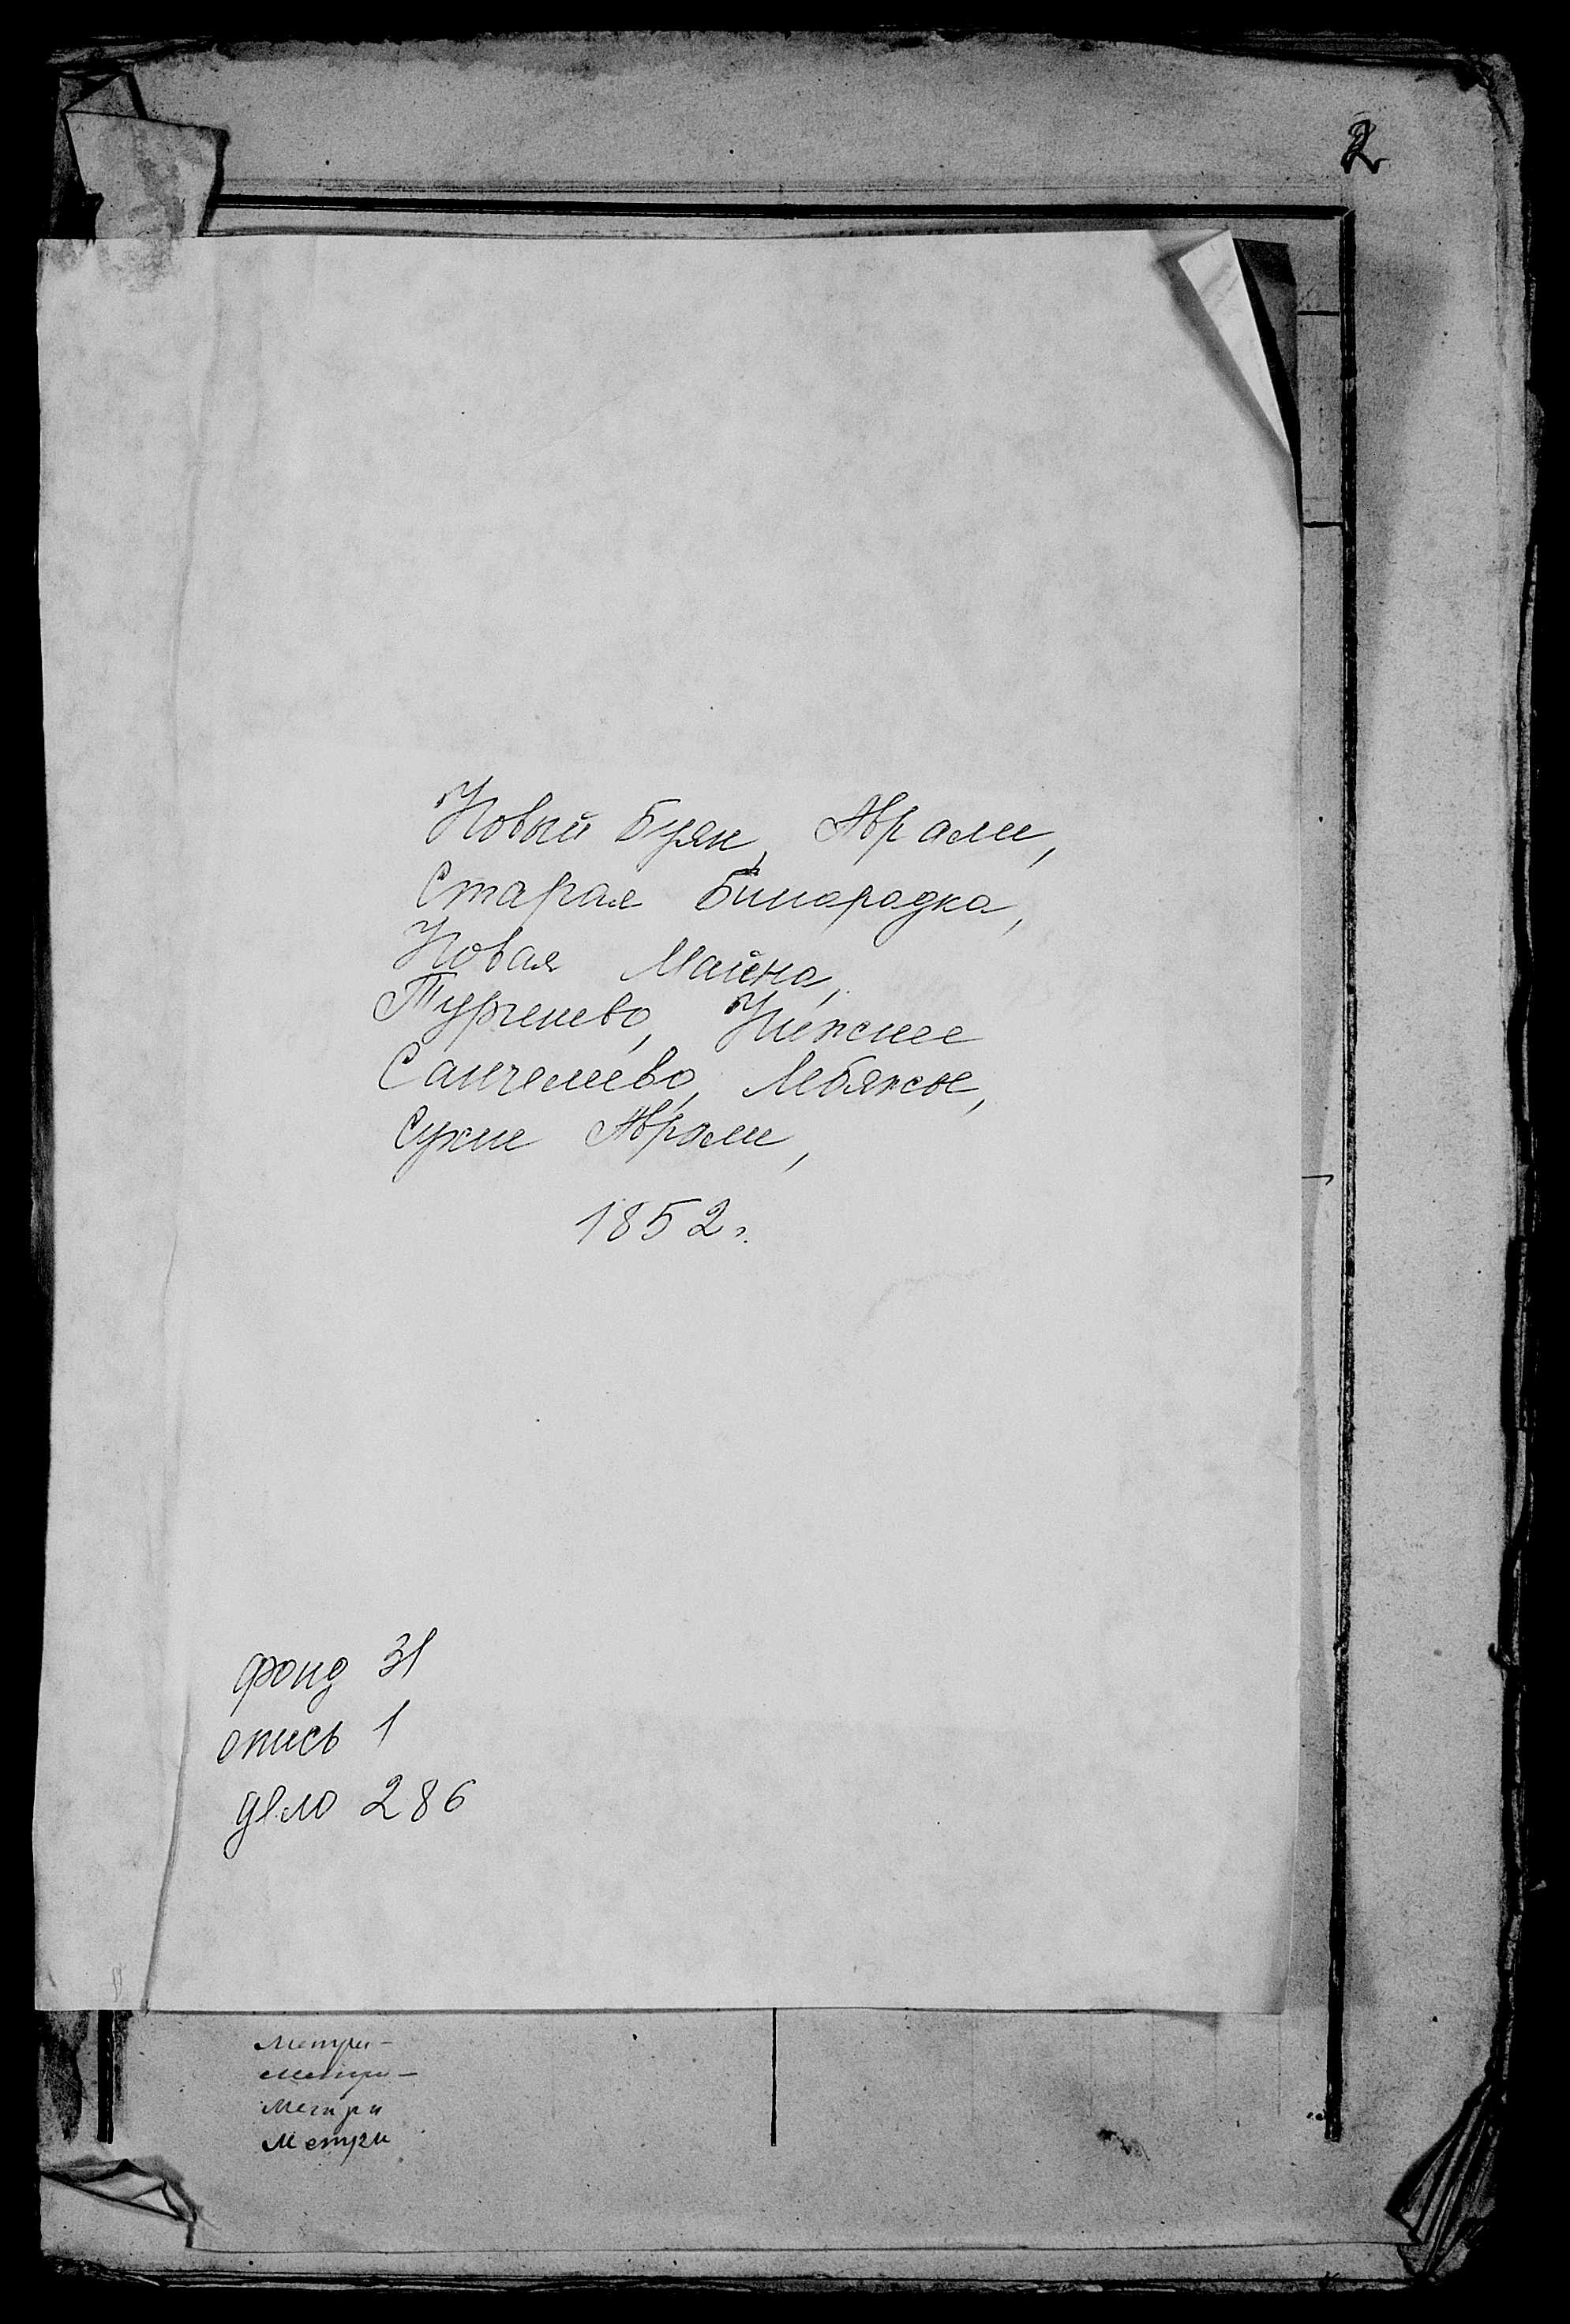 2
Новый Буян, Аврали,
Старая Бинарадка,
Новая Майна,
Тургенево, Нижнее
Санчелеево, Лебяжье,
Сухие Аврали,
1852 г.
фонд 31
опись 1
дело 286
Метри-
Метри-
Метри
Метри